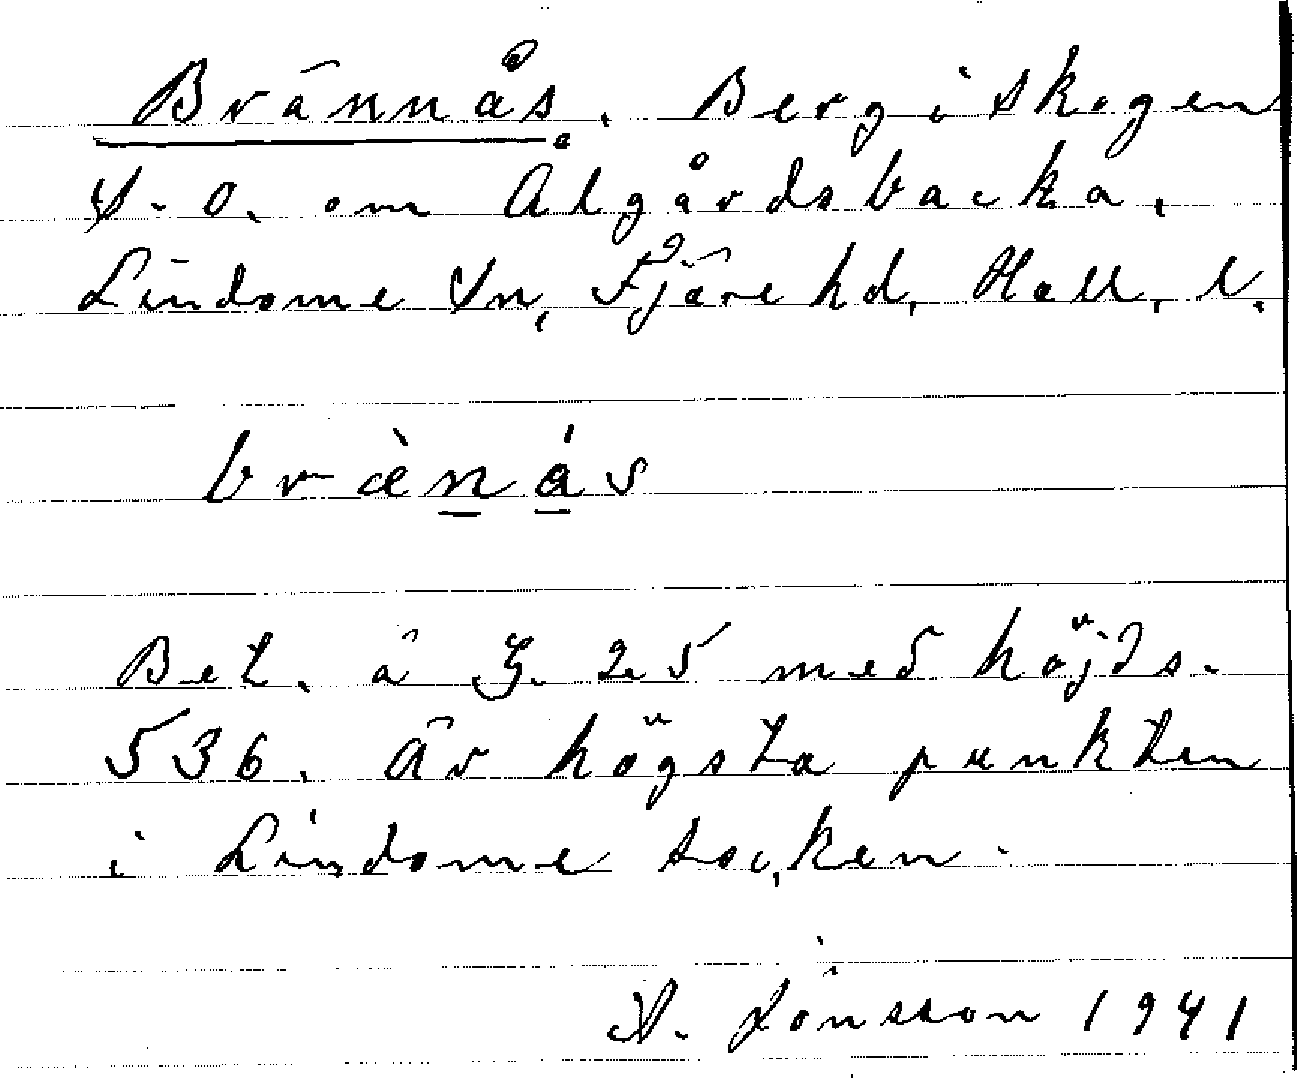 Brännås. Berg i skogen
S.O. om Ålgårdsbacka.
Lindome Sn, Fjäre hd, Hall. l.
bræ̀nás
Bet. å G. 25 med höjds.
536. Är högsta punkten
i Lindome socken.
A. Jönsson 1941